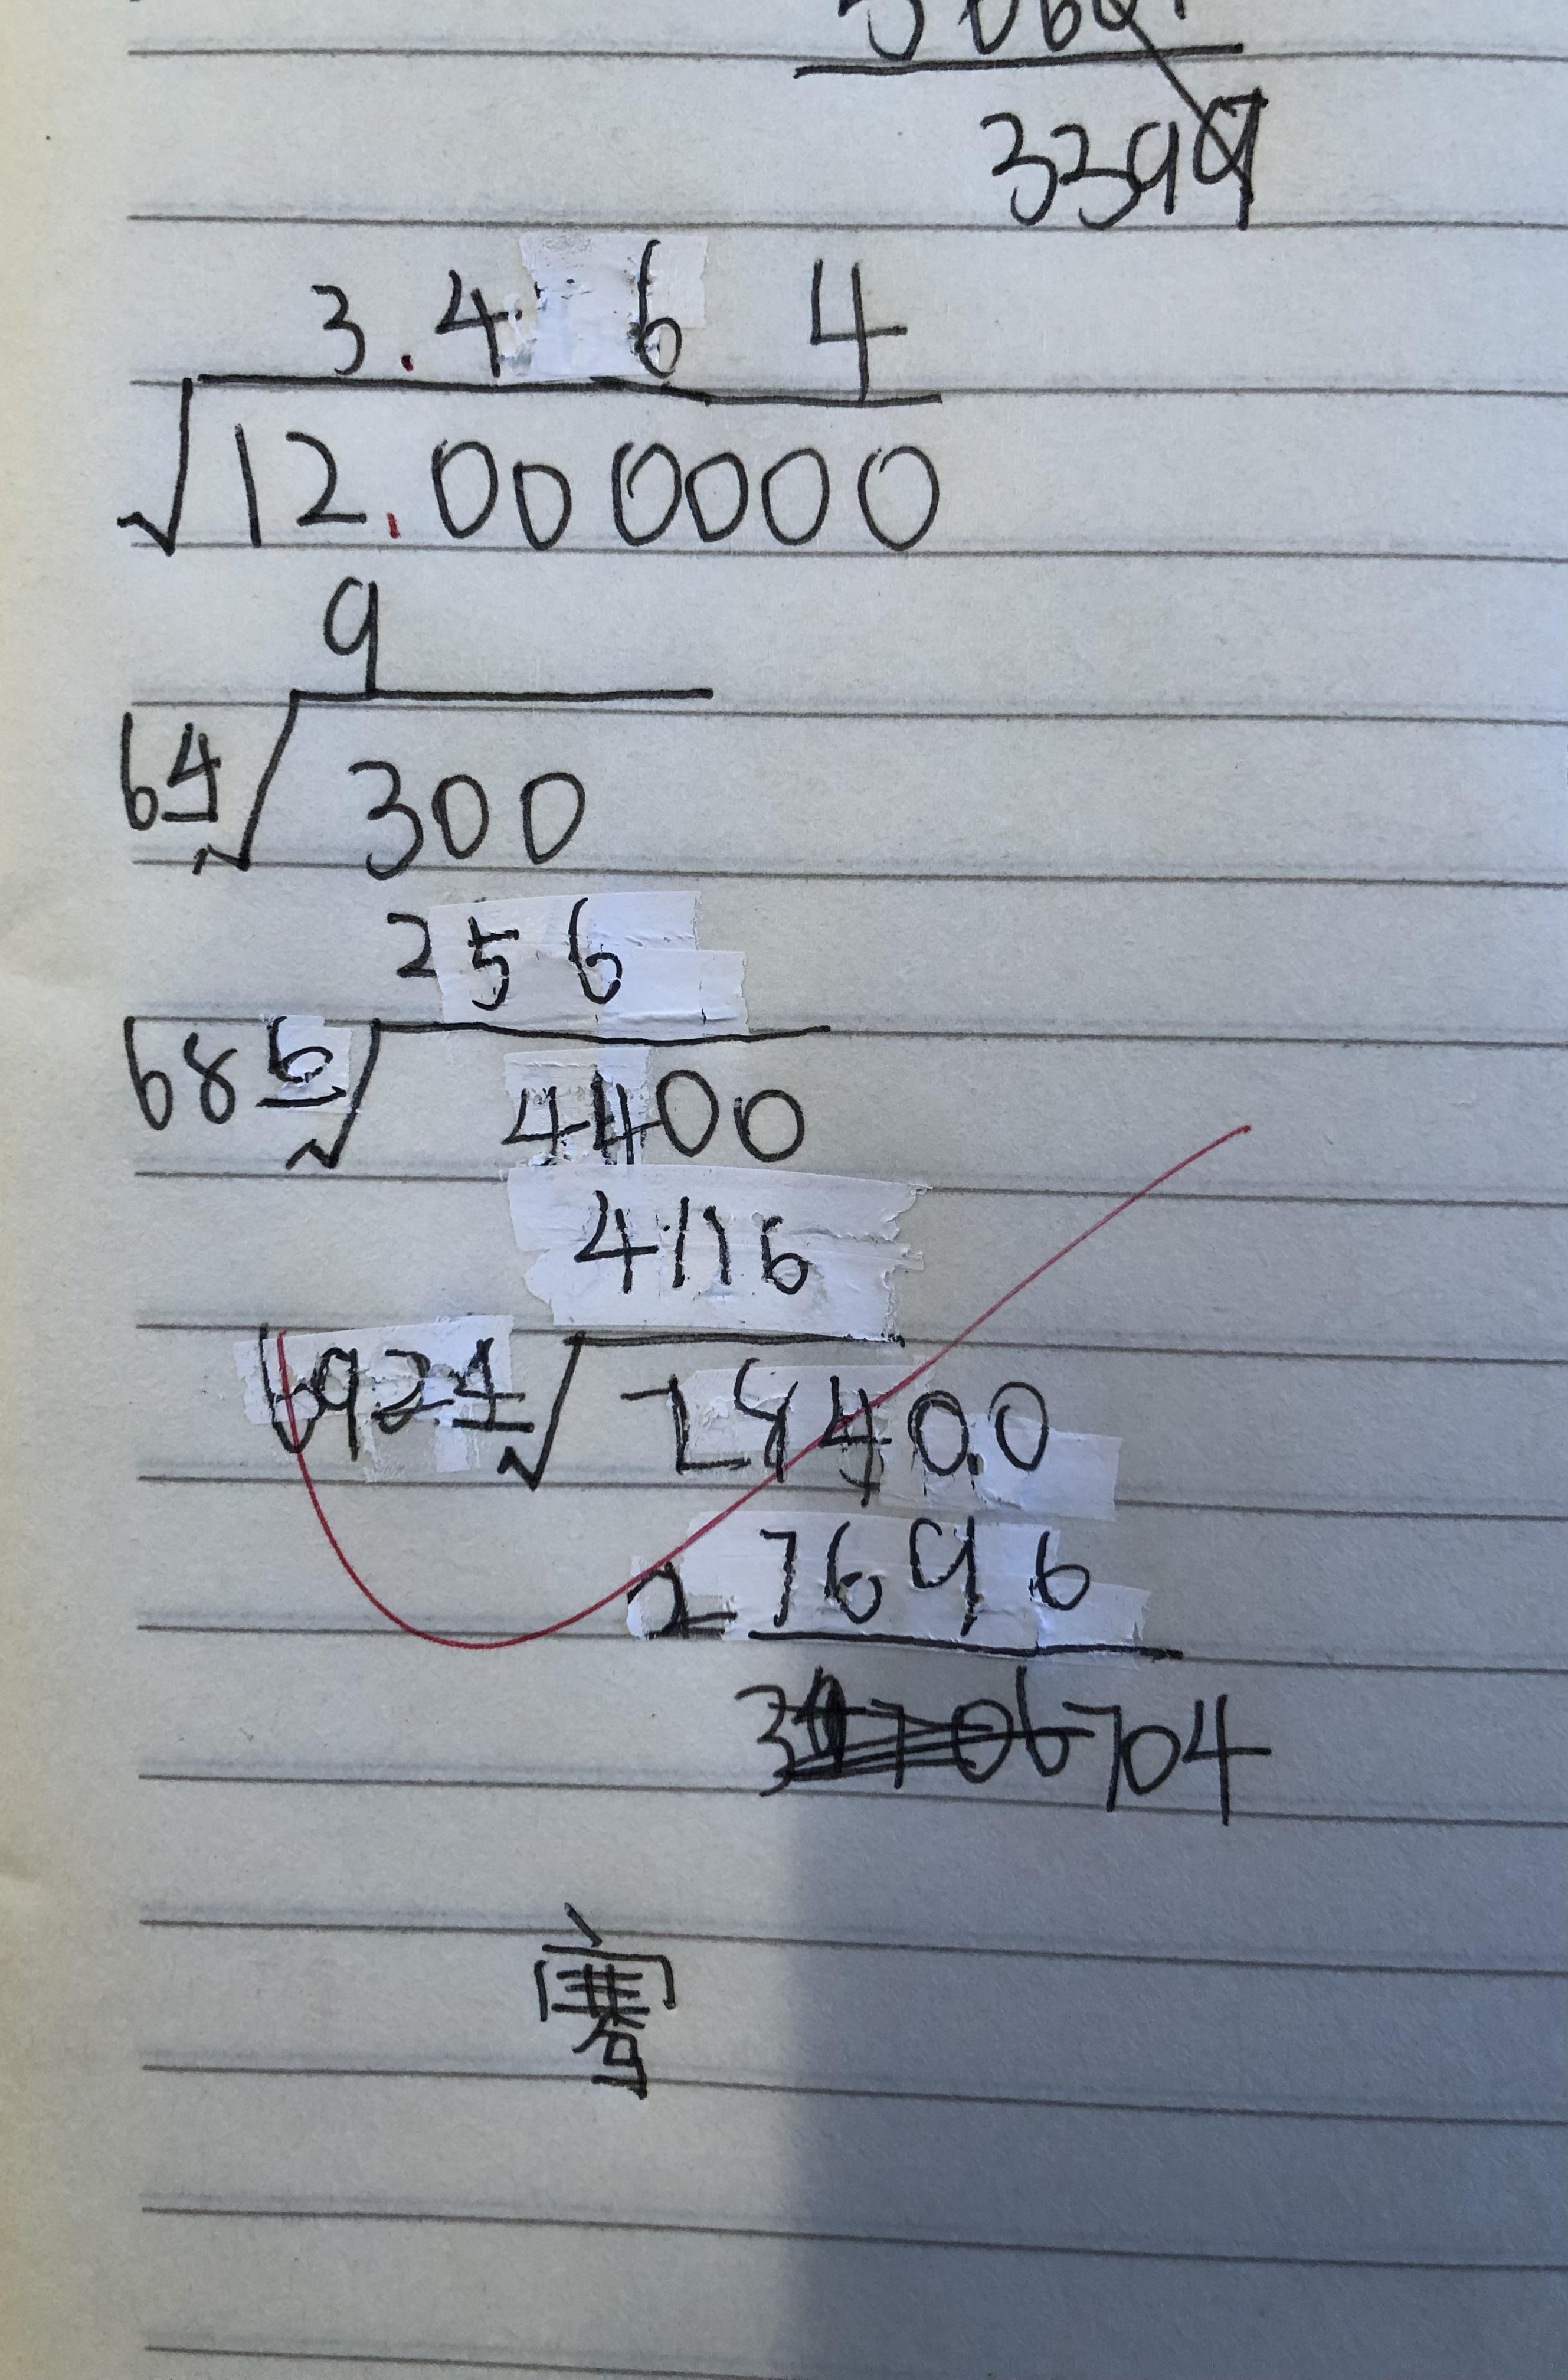 3399
3.4 6 4
√12.000000
9
64√300
256
686√4400
4116
6924√28400
27696
704